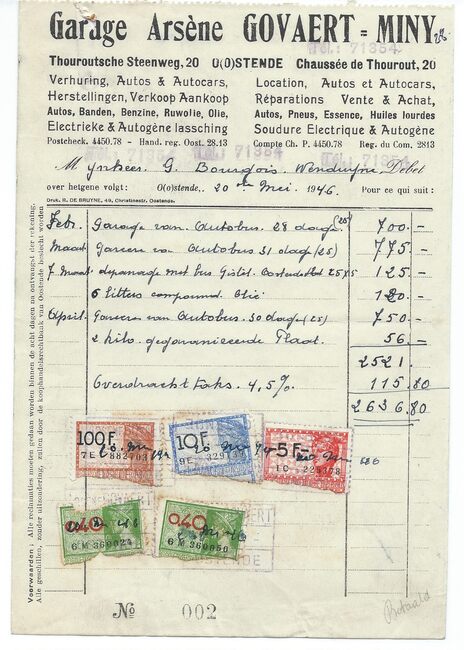 Garage Arsène GOVAERT = MINY
Tel.: 71354
Thouroutsche Steenweg, 20 O(O)STENDE Chaussée de Thourout, 20
Verhuring, Autos & Autocars, Location, Autos et Autocars,
Herstellingen, Verkoop Aankoop Réparations Vente & Achat,
Autos, Banden, Benzine, Ruwolie, Olie, Autos, Pneus, Essence, Huiles lourdes
Electrieke & Autogène lassching Soudure Electrique & Autogène
Postcheck. 4450.78 - Hand. reg. Oost. 28.13 Compte Ch. P. 4450.78 Reg. du Com. 2813
Mijnheer G. Bourgois. Wenduyne, Debet
over hetgene volgt: O(o)stende, 20 Mei 1946 Pour ce qui suit:
Druk. R. DE BRUYNE, 49, Christinastr. Oostende.
Febr. Garage van Autobus 28 dage (25) 700.-
Maart Gareeren van Autobus 31 dag (25) 775.-
7 Maart depanage met bus Gistel. 25x5 125.-
6 litters Olie 120.-
April Gareeren van Autobus. 30 dage (25) 750.-
2 kilo gegaranieerde 56.-
2521.
Overdracht taks. 4,5% 115.80
2636.80
100 F. 10 F. 5 F.
0.40 0.40
6 M 360024 6 M 360050
No 002
Betaald
Voorwaarden: Alle reclamatiën moeten gedaan worden binnen de acht dagen na ontvangst der rekening.
Alle geschillen, zonder uitzondering, zullen door de koophandelsrechtbank van Oostende beslecht worden